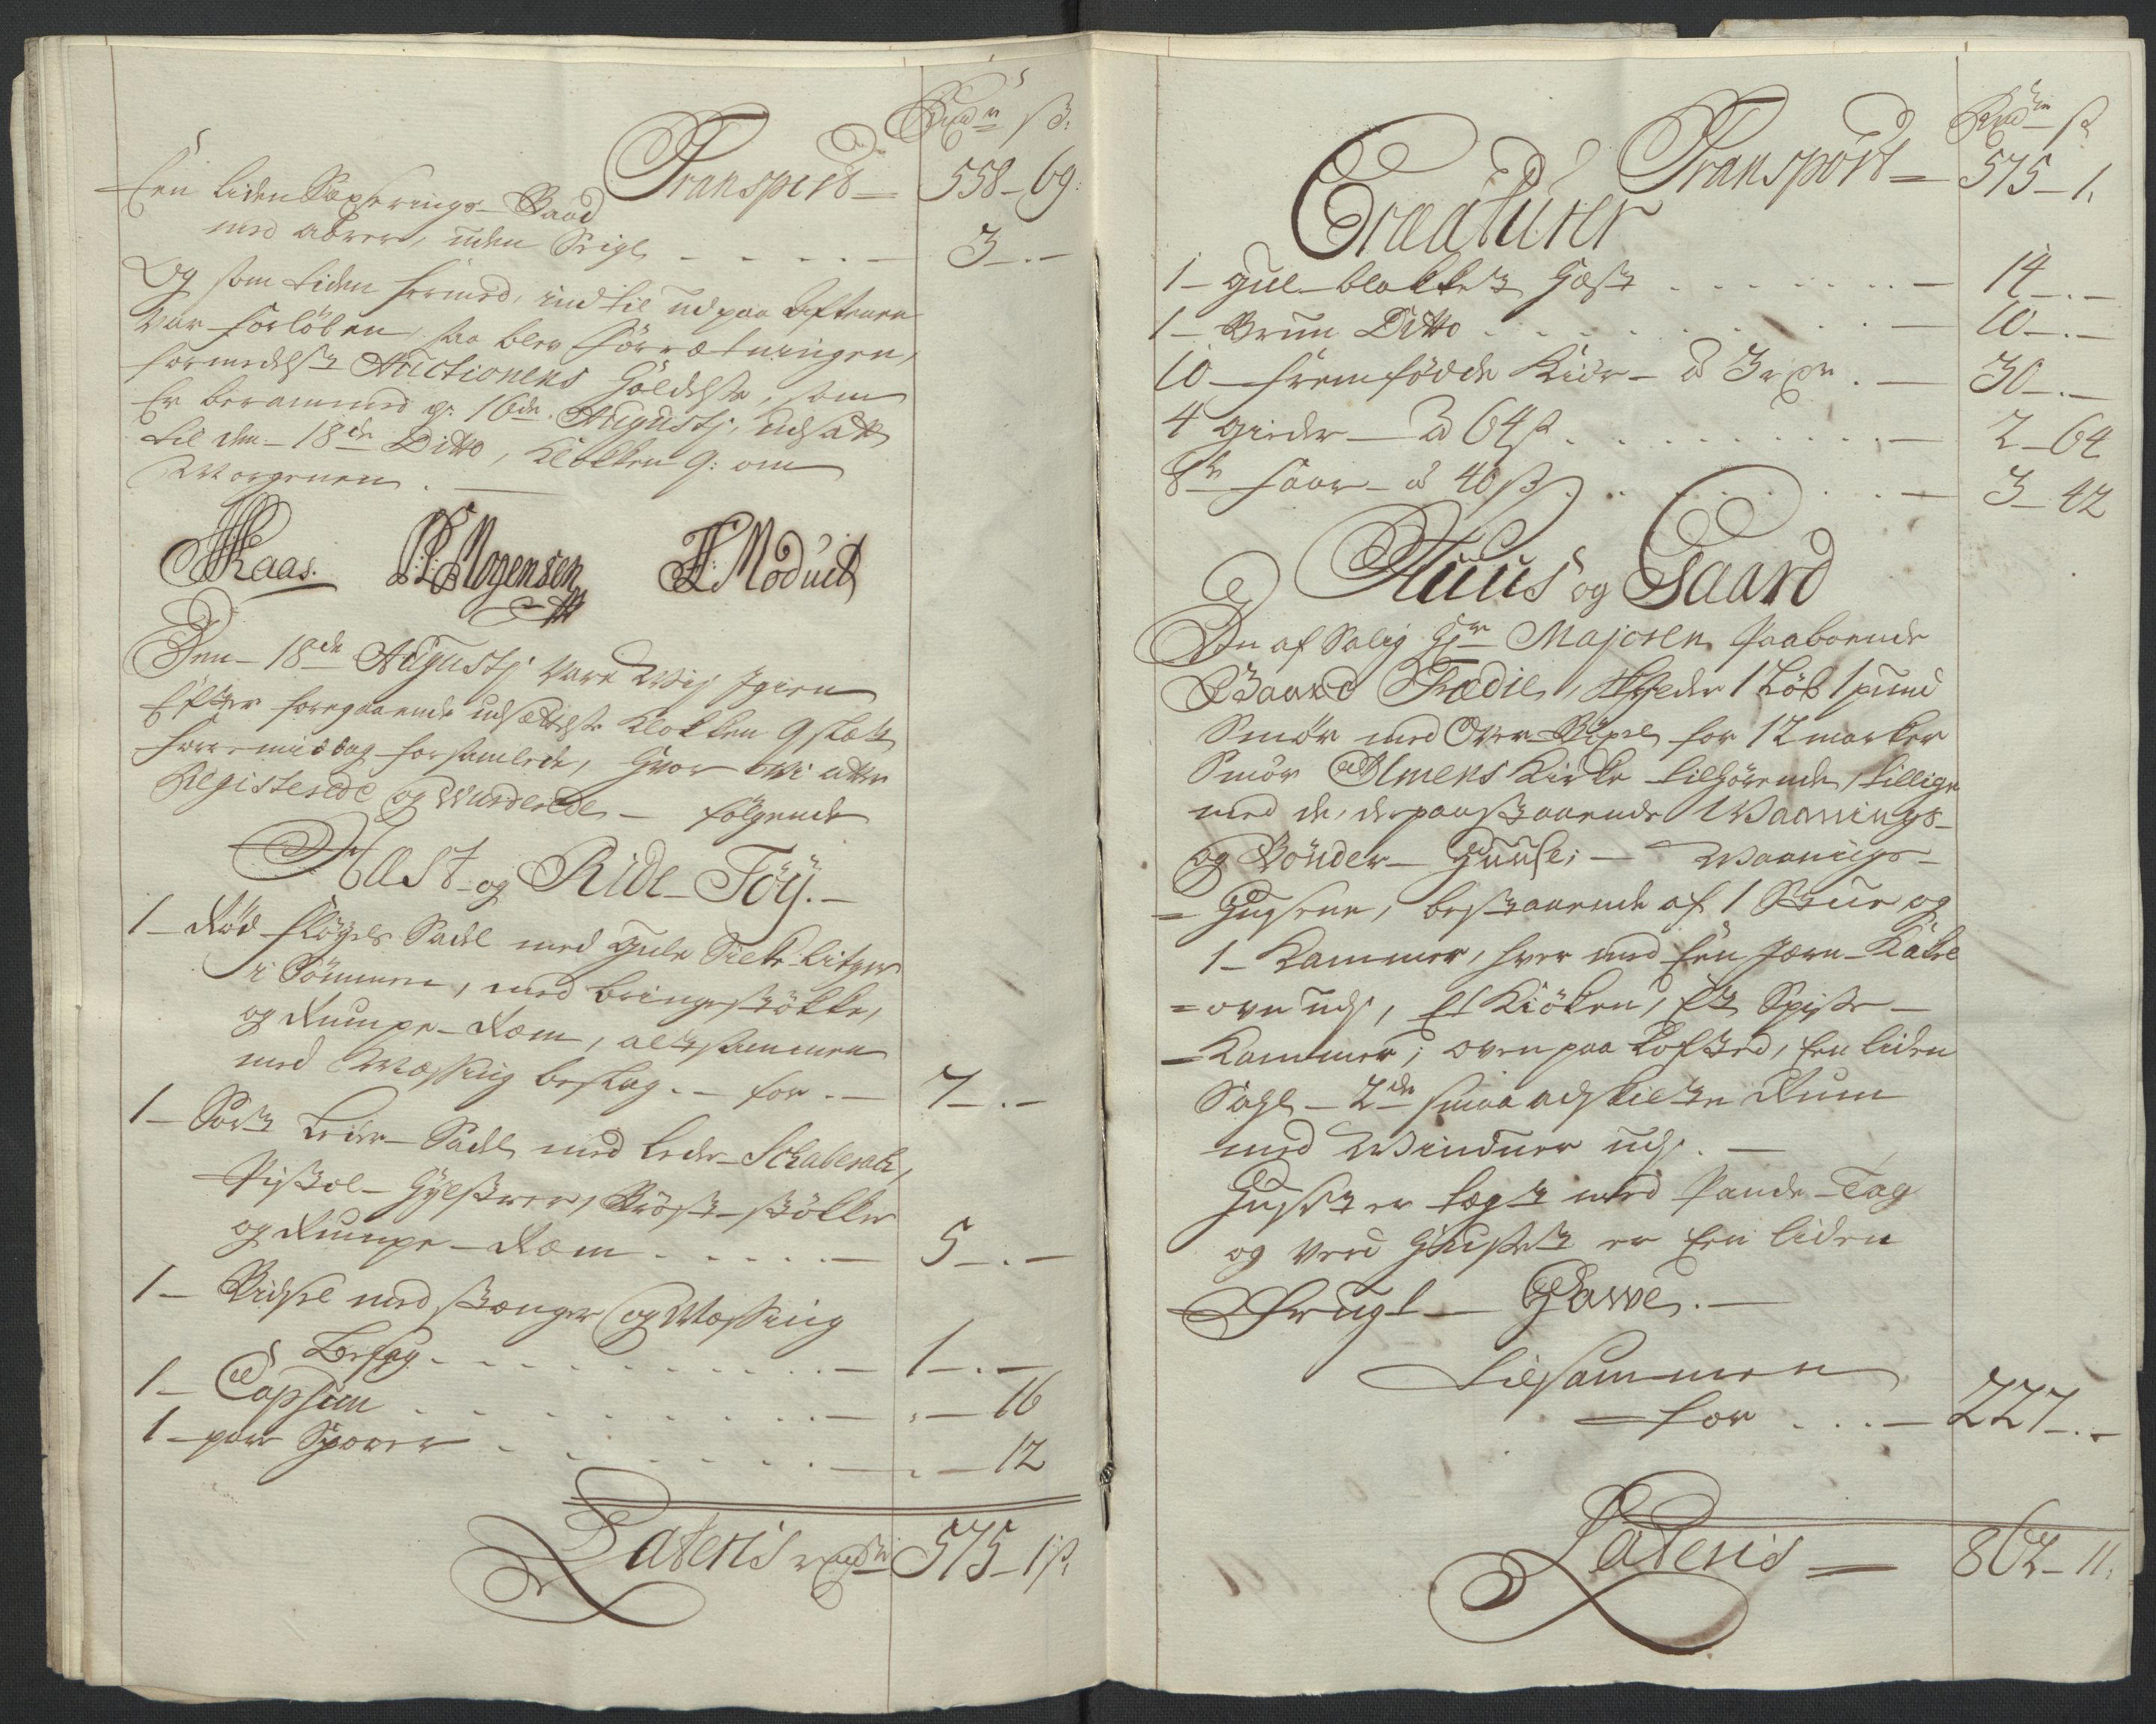 Rdr ß:
Transport 558 - 69:
Een liden Sexærings - Baad
med aarer, uden Seigl - - - - - 3 - . -
Og som tiden hermed, indtil ud paa Aftenen
var forløben, saa blev forrætningen,
formedelst Auctionens Holdelse, som
Er berammed pr 16de Augustj, udsatt
til den 18de Ditto, Klokken 9: om
Morgenen . —
Kaas. Mogensen
Den - 18de Augustj vare Wij Igien
Efter foregaaende udsættelse Klokken 9 slætt
formiddag forsamlede, hvor Wi atter
Registerede og Vurderede - følgende
Hæst - og Ride - Töÿ. -
1 - Röd fløyels Sadel med gule Silke litzer
i Sömmene, med bringestøkke,
og Rumpe - Rem, altsammen
med Messing beslag. - for . - 7 - . -
1 - Sort Leder - Sadel med leder - Schaberak,
Pistol - Hylstrer, Bröst - støkke
og Rumpe - Rem - - - - - 5 - . -
1 - Bidsel med stænger og Messing
Beslag - - - - - - 1 - . -
1 - Capsun - - - - - - . - 16
1 - par Sporer - - - - - - . - 12
Lateris Rdr 575 - 1 ß.
Rdr ß
Transport = 575 - 1.
Creaturer
1 - guul blakket Hæst - - - - - - 14 - . -
1 - Bruun Ditto - - - - - - 10 - . -
10 - fremfödde Kiör - à 3 rdr . - 30 - . -
4 gieder - à 64 ß - - - - - - 2 - 64
8te faar - à 40 ß - - - - - - 3 - 42
Huus og Gaard
Den af Salig Hr Majoren paaboende
Gaard Trædie, Skylder 1 Löb 1 pund
Smör med Over Böxel for 12 marker
Smör Kirke tilhørende, tillige
med de, derpaastaaende Waanings -
og Bönder - Huuse; - Waanings -
= Huusene, bestaaende af 1 Stue og
1 - Kammer, hver med Een Jern - Kakel
= ovn udj, Et Kiöken, Et Spise -
- Kammer; oven paa Loftet, Een liden
Sahl - 2de smaa adskilte Rum
med Winduer udj. -
Huset er lagt med Pande - Tag
og ved Huuset er Een liden
Frugt - Hawe. -
Tilsammen
= for . . . - 227 - . -
Lateris = 862 - 11.